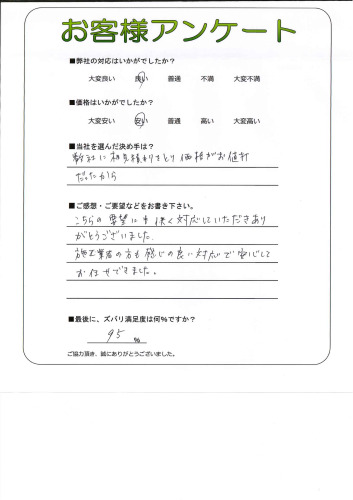 お客様アンケート
■弊社の対応はいかがでしたか？
大変良い 良い 普通 不満 大変不満
■価格はいかがでしたか？
大変安い 安い 普通 高い 大変高い
■当社を選んだ決め手は？
数社に相見積りをとり価格がお値打
だったから
■ご感想・ご要望などをお書き下さい。
こちらの要望にも快く対応していただきあり
がとうございました。
施工業者の方も感じの良い対応で安心して
お任せできました。
■最後に、ズバリ満足度は何％ですか？
95 %
ご協力頂き、誠にありがとうございました。